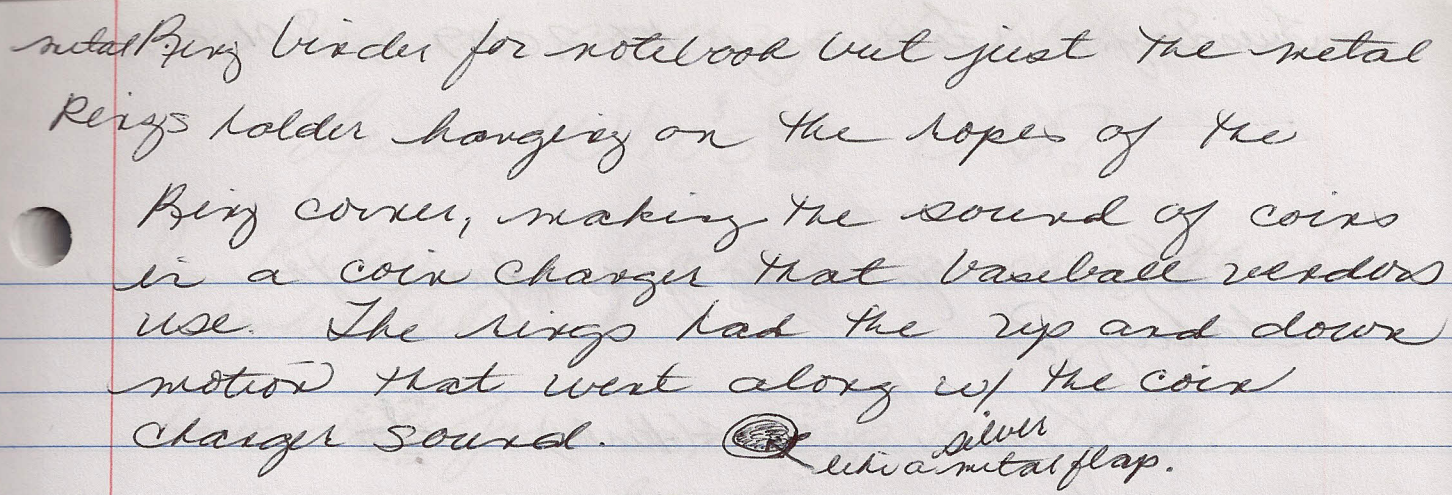 metal Ring binder for notebook but just the metal
Rings holder hanging on the ropes of the
Ring corner, making the sound of coins
in a coin changer that baseball vendors
use. The rings had the up and down
motion that went along w/ the coin
changer sound.
silver
like a metal flap.